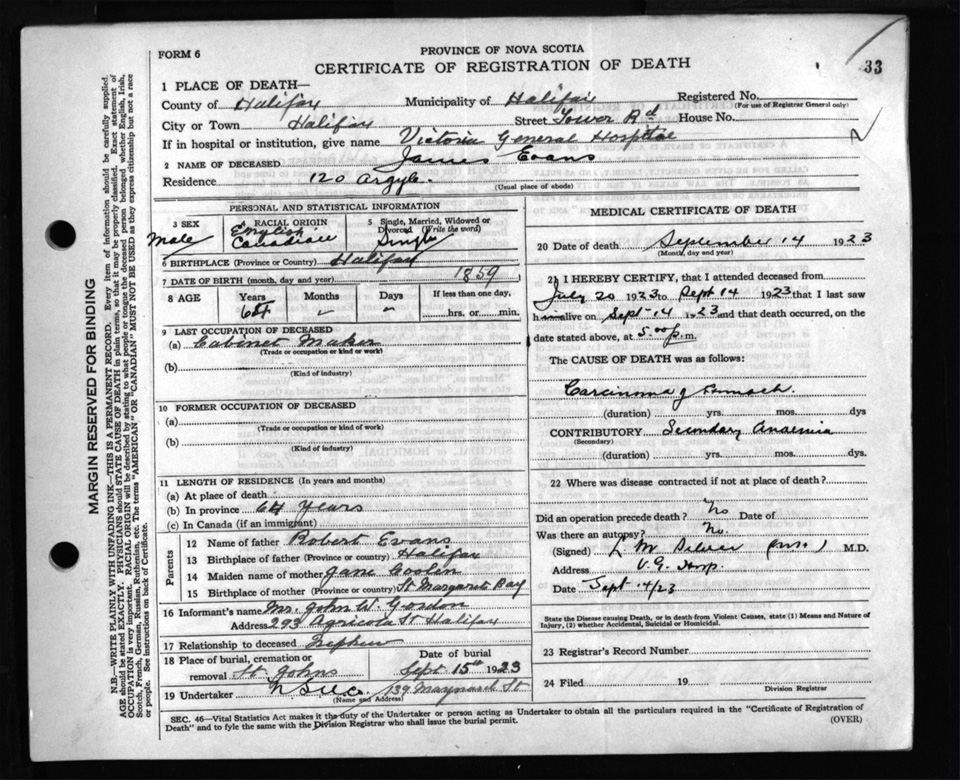 FORM 6
PROVINCE OF NOVA SCOTIA
CERTIFICATE OF REGISTRATION OF DEATH
33
1 PLACE OF DEATH—
County of Halifax Municipality of Halifax Registered No.
(For use of Registrar General only)
City or Town Halifax Street Tower Rd House No.
If in hospital or institution, give name Victoria General Hospital
2 NAME OF DECEASED James Evans
Residence 120 Argyle.
(Usual place of abode)
PERSONAL AND STATISTICAL INFORMATION
3 SEX RACIAL ORIGIN 5 Single, Married, Widowed or Divorced (Write the word)
Male English Canadian Single
6 BIRTHPLACE (Province or Country) Halifax
7 DATE OF BIRTH (month, day and year) 1859
8 AGE Years Months Days If less than one day,
64 hrs. or min.
9 LAST OCCUPATION OF DECEASED
(a) Cabinet Maker
(Trade or occupation or kind of work)
(b)
(Kind of industry)
10 FORMER OCCUPATION OF DECEASED
(a)
(Trade or occupation or kind of work)
(b)
(Kind of industry)
11 LENGTH OF RESIDENCE (In years and months)
(a) At place of death
(b) In province 64 Years
(c) In Canada (if an immigrant)
Parents
12 Name of father Robert Evans
13 Birthplace of father (Province or country) Halifax
14 Maiden name of mother Jane Coolen
15 Birthplace of mother (Province or country) St Margarets Bay
16 Informant's name Mr. John W. Gordon
Address 293 Agricola St Halifax
17 Relationship to deceased Nephew
18 Place of burial, cremation or removal St Johns
Date of burial Sept 15th 1923
19 Undertaker N S U Co. 139 Maynard St
(Name and Address)
MEDICAL CERTIFICATE OF DEATH
20 Date of death September 14 1923
(Month, day and year)
21 I HEREBY CERTIFY, that I attended deceased from
July 20 1923 to Sept 14 1923 that I last saw
him alive on Sept-14 1923 and that death occurred, on
date stated above, at 5.00 p.m.
The CAUSE OF DEATH was as follows:
Carcinoma of Stomach.
(duration) yrs. mos. dys
CONTRIBUTORY Secondary Anaemia
(Secondary)
(duration) yrs. mos. dys.
22 Where was disease contracted if not at place of death?
Did an operation precede death? No Date of
Was there an autopsy? No.
(Signed) L M Silver M.D.
Address V.G. Hosp.
Date Sept 14/23
State the Disease causing Death, or in death from Violent Causes, state (1) Means and Nature of
Injury, (2) whether Accidental, Suicidal or Homicidal.
23 Registrar's Record Number
24 Filed 19
Division Registrar
SEC. 46—Vital Statistics Act makes it the duty of the Undertaker or person acting as Undertaker to obtain all the particulars required in the "Certificate of Registration of
Death" and to fyle the same with the Division Registrar who shall issue the burial permit.
(OVER)
MARGIN RESERVED FOR BINDING
N.B.—WRITE PLAINLY WITH UNFADING INK—THIS IS A PERMANENT RECORD. Every item of information should be carefully supplied.
AGE should be stated EXACTLY. PHYSICIANS should STATE CAUSE OF DEATH in plain terms, so that it may be properly classified. Exact statement of
OCCUPATION is very important. RACIAL ORIGIN will be described by stating to what people or tongue the deceased person belonged whether English, Irish,
Scotch, French, German, Russian, Ruthenian, etc. The terms "AMERICAN" OR "CANADIAN" MUST NOT BE USED as they express citizenship but not a race
or people. See instructions on back of Certificate.